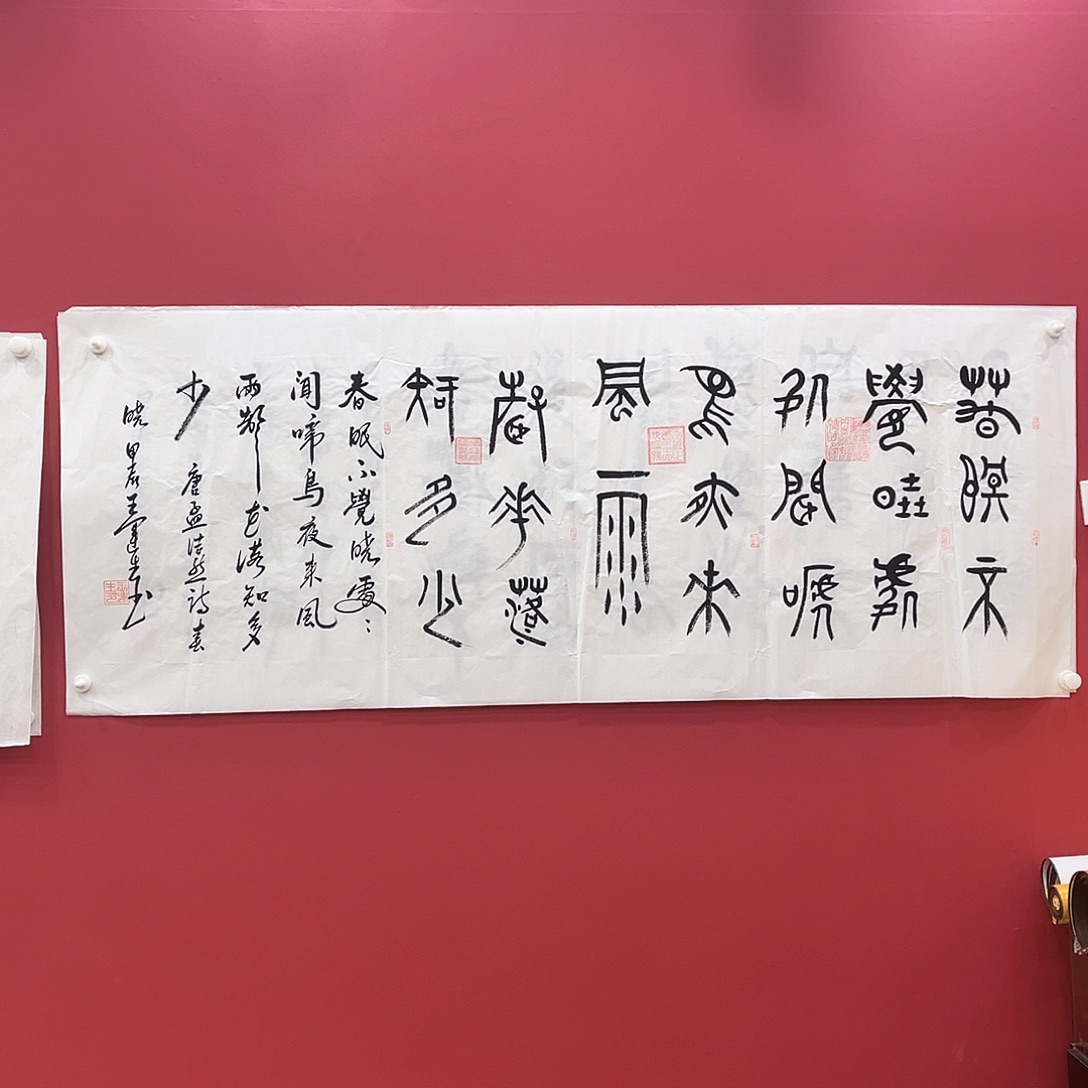 春眠不
覺曉處
処聞啼
鳥夜来
風雨
聲花落
知多少
春眠不覺曉處〻
聞啼鳥夜来風
雨聲花落知多
少 唐孟浩然詩春
曉 甲辰王書